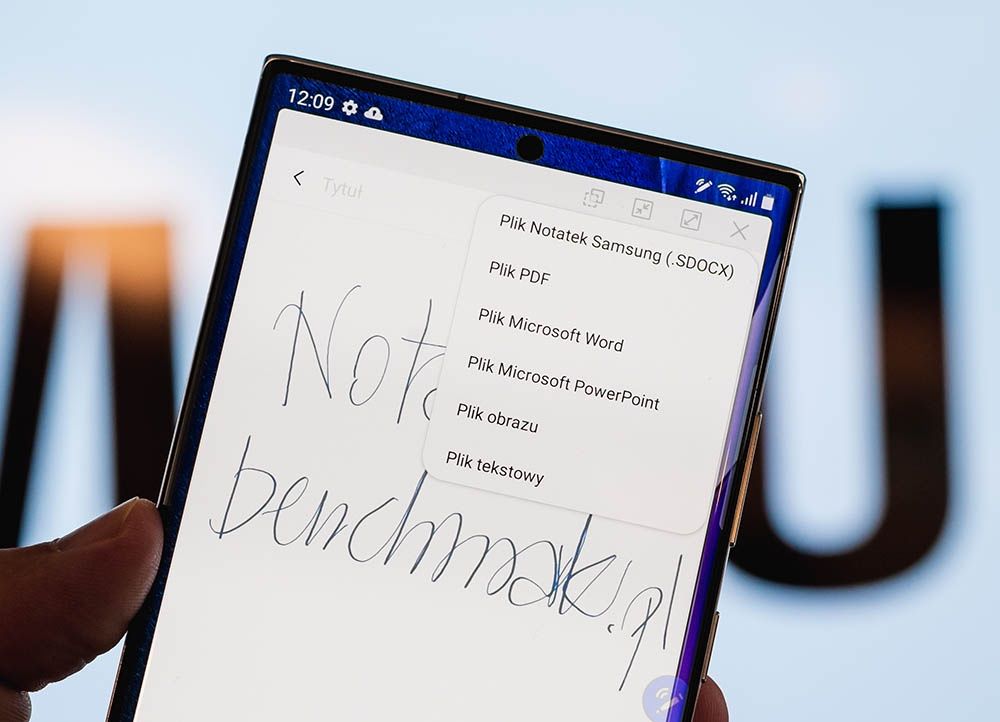 12:09
Tytuł
Plik Notatek Samsung (.SDOCX)
Plik PDF
Plik Microsoft Word
Plik Microsoft PowerPoint
Plik obrazu
Plik tekstowy
benchmark.pl
U